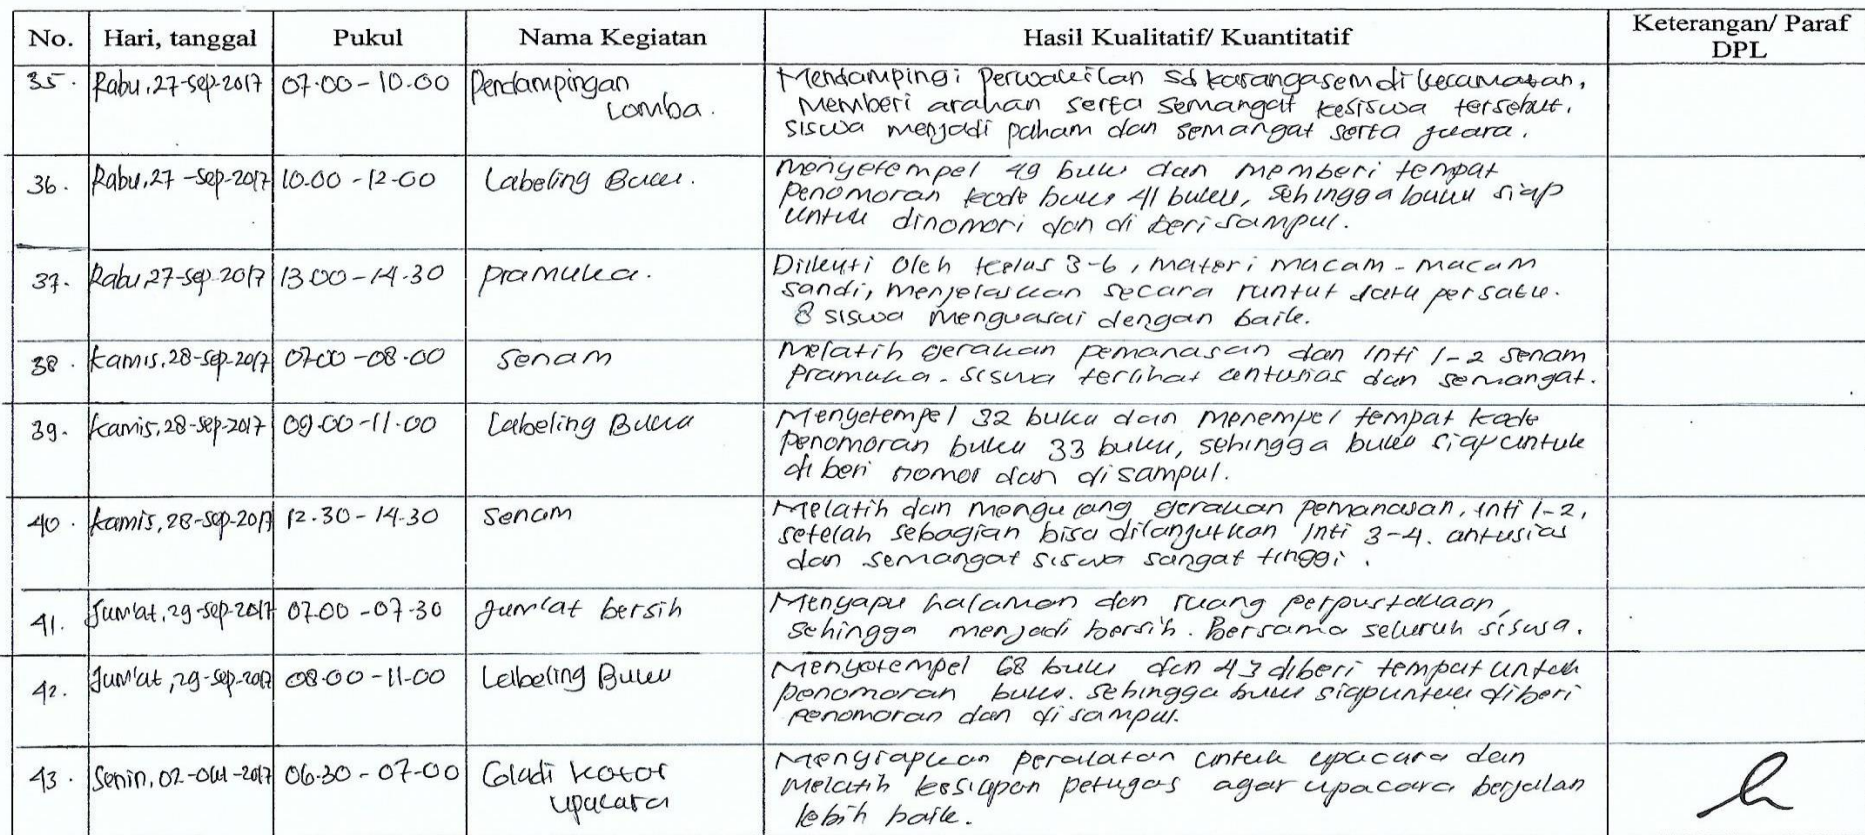 No. Hari, tanggal Pukul Nama Kegiatan Hasil Kualitatif/ Kuantitatif Keterangan/ Paraf DPL
35. Rabu, 27-Sep-2017 07.00-10.00 Pendampingan Lomba. Mendampingi perwakilan sd karangasem di kecamatan,
memberi arahan serta semangat kesiswa tersebut.
siswa menjadi paham dan semangat serta juara.
36. Rabu, 27-Sep-2017 10.00-12-00 Labeling Buku. Menyetempel 49 buku dan memberi tempat
penomoran kode buku 41 buku, sehingga buku siap
untuk dinomori dan di beri sampul.
37. Rabu 27-Sep-2017 13.00-14.30 pramuka. Diikuti oleh kelas 3-6, materi macam-macam
sandi, menjelaskan secara runtut satu persatu.
8 siswa menguasai dengan baik.
38. Kamis, 28-Sep-2017 07.00-08.00 Senam Melatih gerakan pemanasan dan inti 1-2 senam
pramuka. siswa terlihat antusias dan semangat.
39. Kamis, 28-Sep-2017 09.00-11.00 Labeling Buku Menyetempel 32 buku dan menempel tempat kode
penomoran buku 33 buku, sehingga buku siap untuk
di beri nomor dan disampul.
40. Kamis, 28-Sep-2017 12.30-14.30 Senam Melatih dan mengulang gerakan pemanasan, inti 1-2,
setelah sebagian bisa dilanjutkan inti 3-4. antusias
dan semangat siswa sangat tinggi.
41. Jum'at, 29-Sep-2017 07.00-07.30 Jum'at bersih Menyapu halaman dan ruang perpustakaan,
sehingga menjadi bersih. Bersama seluruh siswa.
42. Jum'at, 29-Sep-2017 08.00-11-00 Labeling Buku Menyetempel 68 buku dan 43 diberi tempat untuk
penomoran buku. Sehingga buku siap untuk diberi
penomoran dan disampul.
43. Senin, 02-Okt-2017 06.30-07-00 Gladi kotor upacara Menyiapkan peralatan untuk upacara dan
melatih kesiapan petugas agar upacara berjalan
lebih baik.